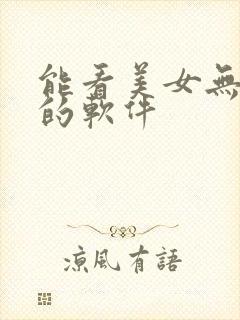 能看美女無
的軟件
涼風有語